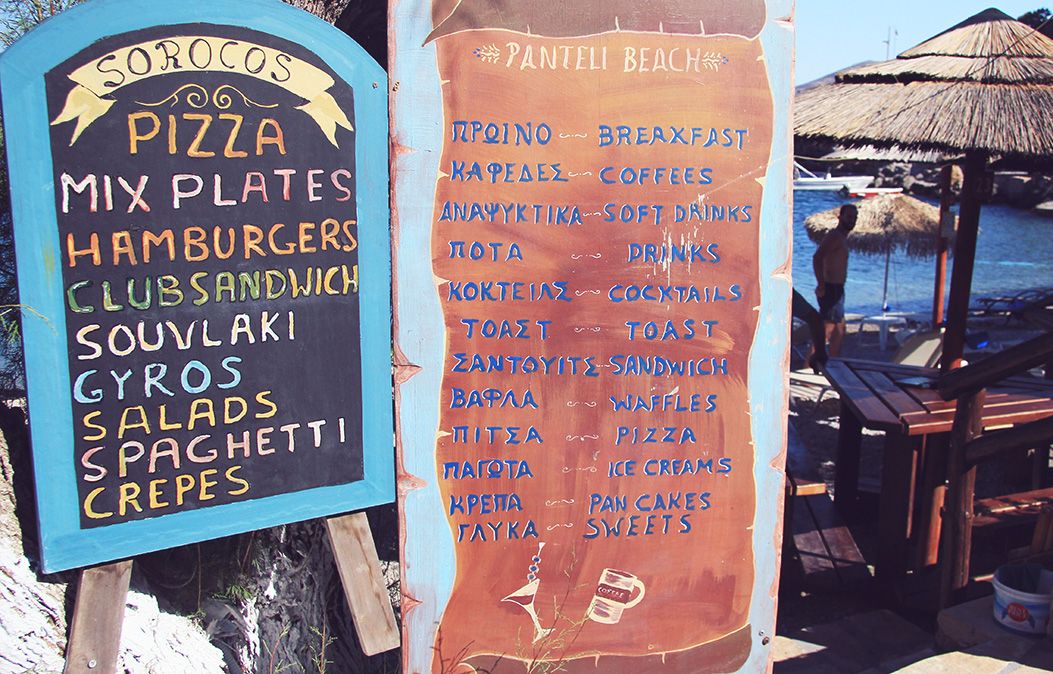 SOROCOS
PIZZA
MIX PLATES
HAMBURGERS
CLUBSANDWICH
SOUVLAKI
GYROS
SALADS
SPAGHETTI
CREPES
PANTELI BEACH
ΠΡΩΙΝΟ ~ BREAKFAST
ΚΑΦΕΔΕΣ ~ COFFEES
ΑΝΑΨΥΚΤΙΚΑ ~ SOFT DRINKS
ΠΟΤΑ ~ DRINKS
ΚΟΚΤΕΙΛΣ ~ COCKTAILS
ΤΟΑΣΤ ~ TOAST
ΣΑΝΤΟΥΙΤΣ ~ SANDWICH
ΒΑΦΛΑ ~ WAFFLES
ΠΙΤΣΑ ~ PIZZA
ΠΑΓΩΤΑ ~ ICE CREAMS
ΚΡΕΠΑ ~ PAN CAKES
ΓΛΥΚΑ ~ SWEETS
COFFEE